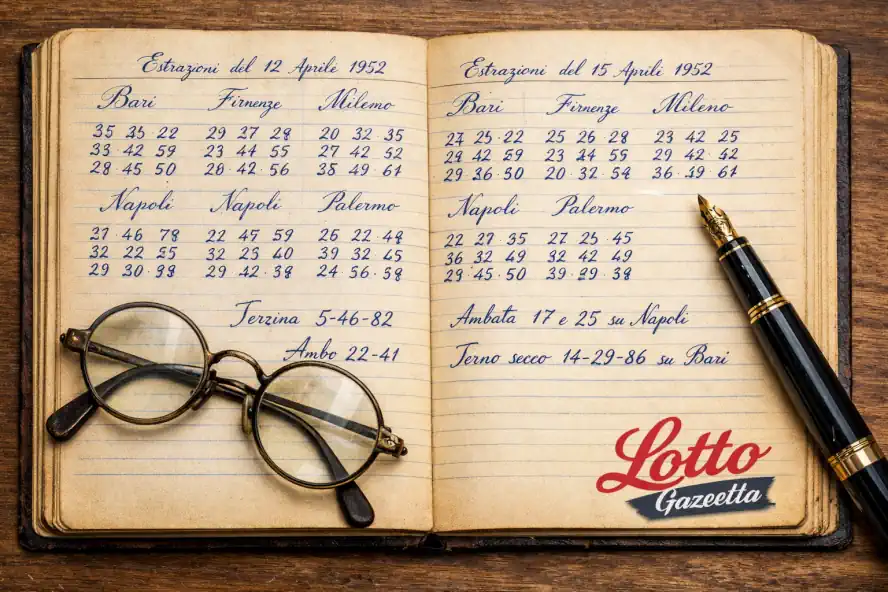 Estrazioni del 12 Aprile 1952
Bari Firnenze Milemo
35 35 22 29 27 28 20 32 35
33 42 59 23 44 55 27 42 52
28 45 50 28 42 56 38 49 61
Napoli Napoli Palermo
27 46 78 22 45 59 26 22 48
32 22 55 32 23 40 39 32 45
29 30 99 29 42 38 24 56 58
Terzina 5-46-82
Ambo 22-41
Estrazioni del 15 Aprile 1952
Bari Firnenze Mileno
27 25 22 25 26 28 23 42 25
29 42 59 23 24 55 29 42 42
29 36 50 20 32 54 36 49 61
Napoli Palermo
22 27 35 27 25 45
36 32 49 32 42 49
29 45 50 39 29 38
Ambata 17 e 25 su Napoli
Terno secco 14-29-86 su Bari
Lotto
Gazeetta